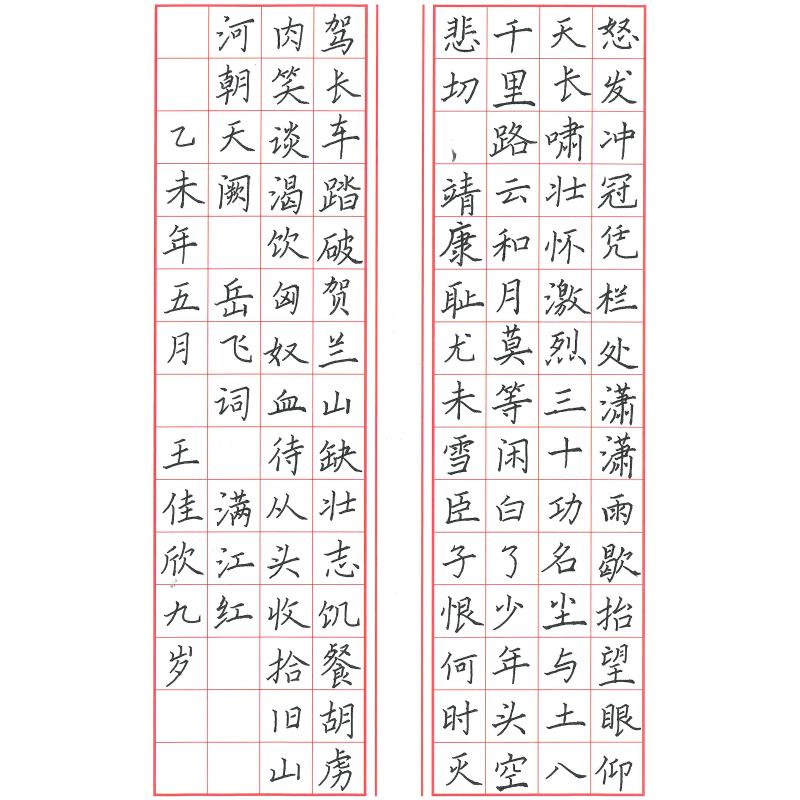 怒发冲冠凭栏处潇潇雨歇抬望眼仰
天长啸壮怀激烈三十功名尘与土八
千里路云和月莫等闲白了少年头空
悲切,靖康耻尤未雪臣子恨何时灭
驾长车踏破贺兰山缺壮志饥餐胡虏
肉笑谈渴饮匈奴血待从头收拾旧山
河朝天阙 岳飞词 满江红
乙未年五月 王佳欣九岁